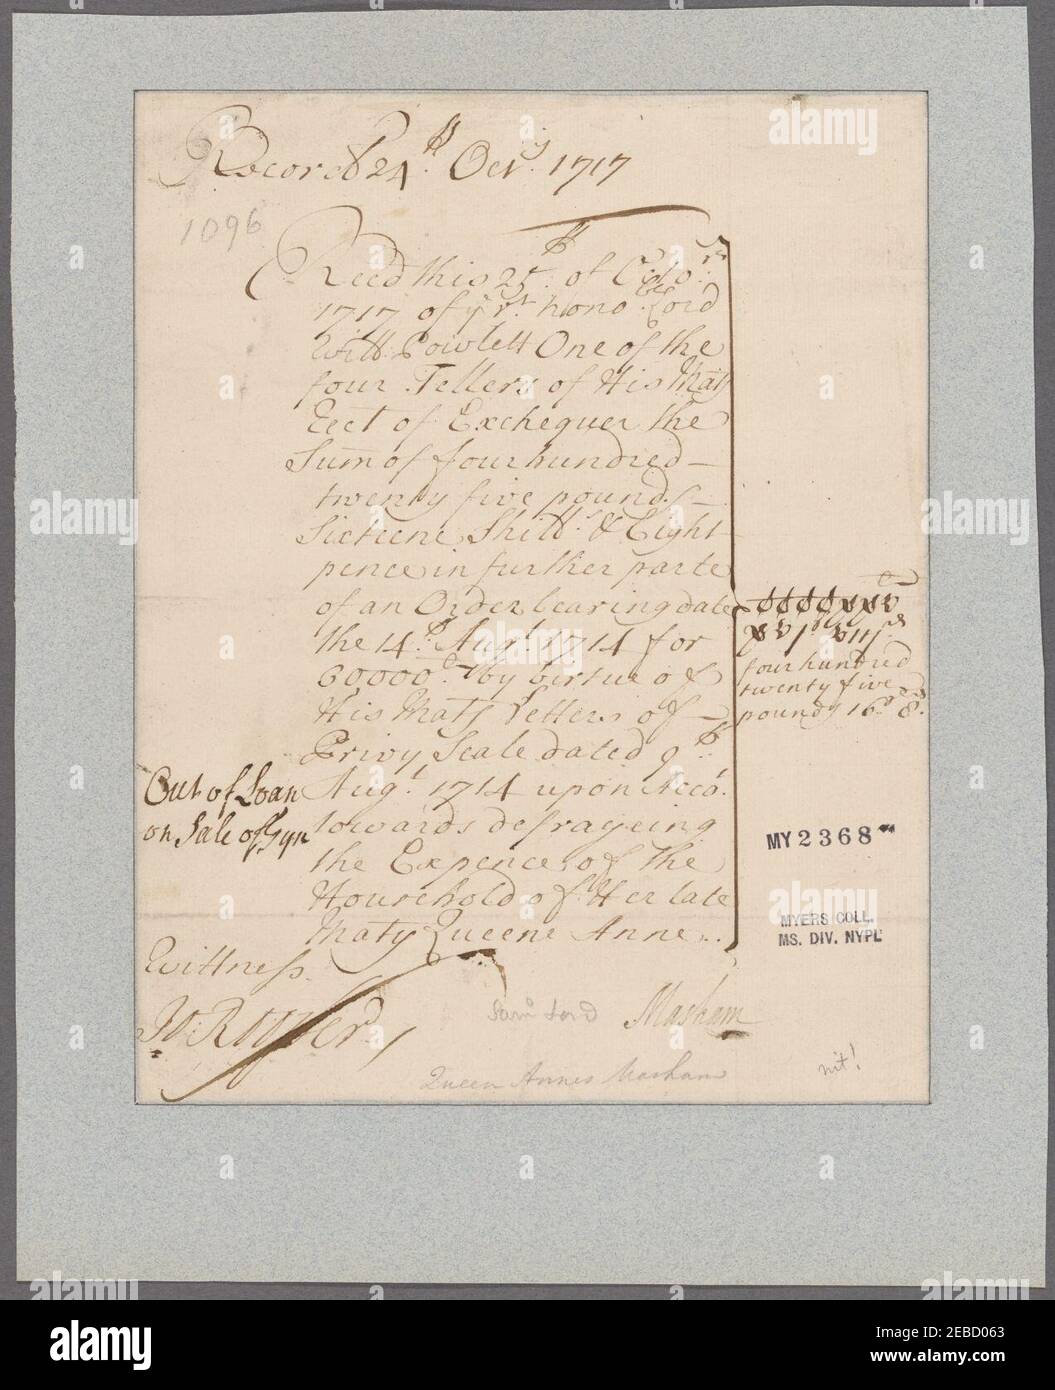 Record 24th Octr. 1717
1096
Recd this 25th of Octobr
1717 of ye Rt. hono.ble Lord
Will Powlett One of the
four Tellers of His Mats
Rect of Exchequer the
Sum of four hundred
twenty five pounds
Sixteene Shill.s & Eight
pence in further parte
of an Order bearing date
the 14th. Augt. 1714 for
60000 by virtue of
His Mats Letters of
Privy Seale dated 9th
Augt. 1714 upon Acco.
towards defrayeing
the Expence of the
Household of Her late
Maty Queene Anne
iiij
four hundred
twenty five
pounds 16s 8d.
Out of Loan
on Sale of
Wittness
MY 2368
MYERS COLL.
MS. DIV. NYPL
Saml Lord Masham
Queen Annes Masham
alamy
Image ID: 2EBD063
www.alamy.com